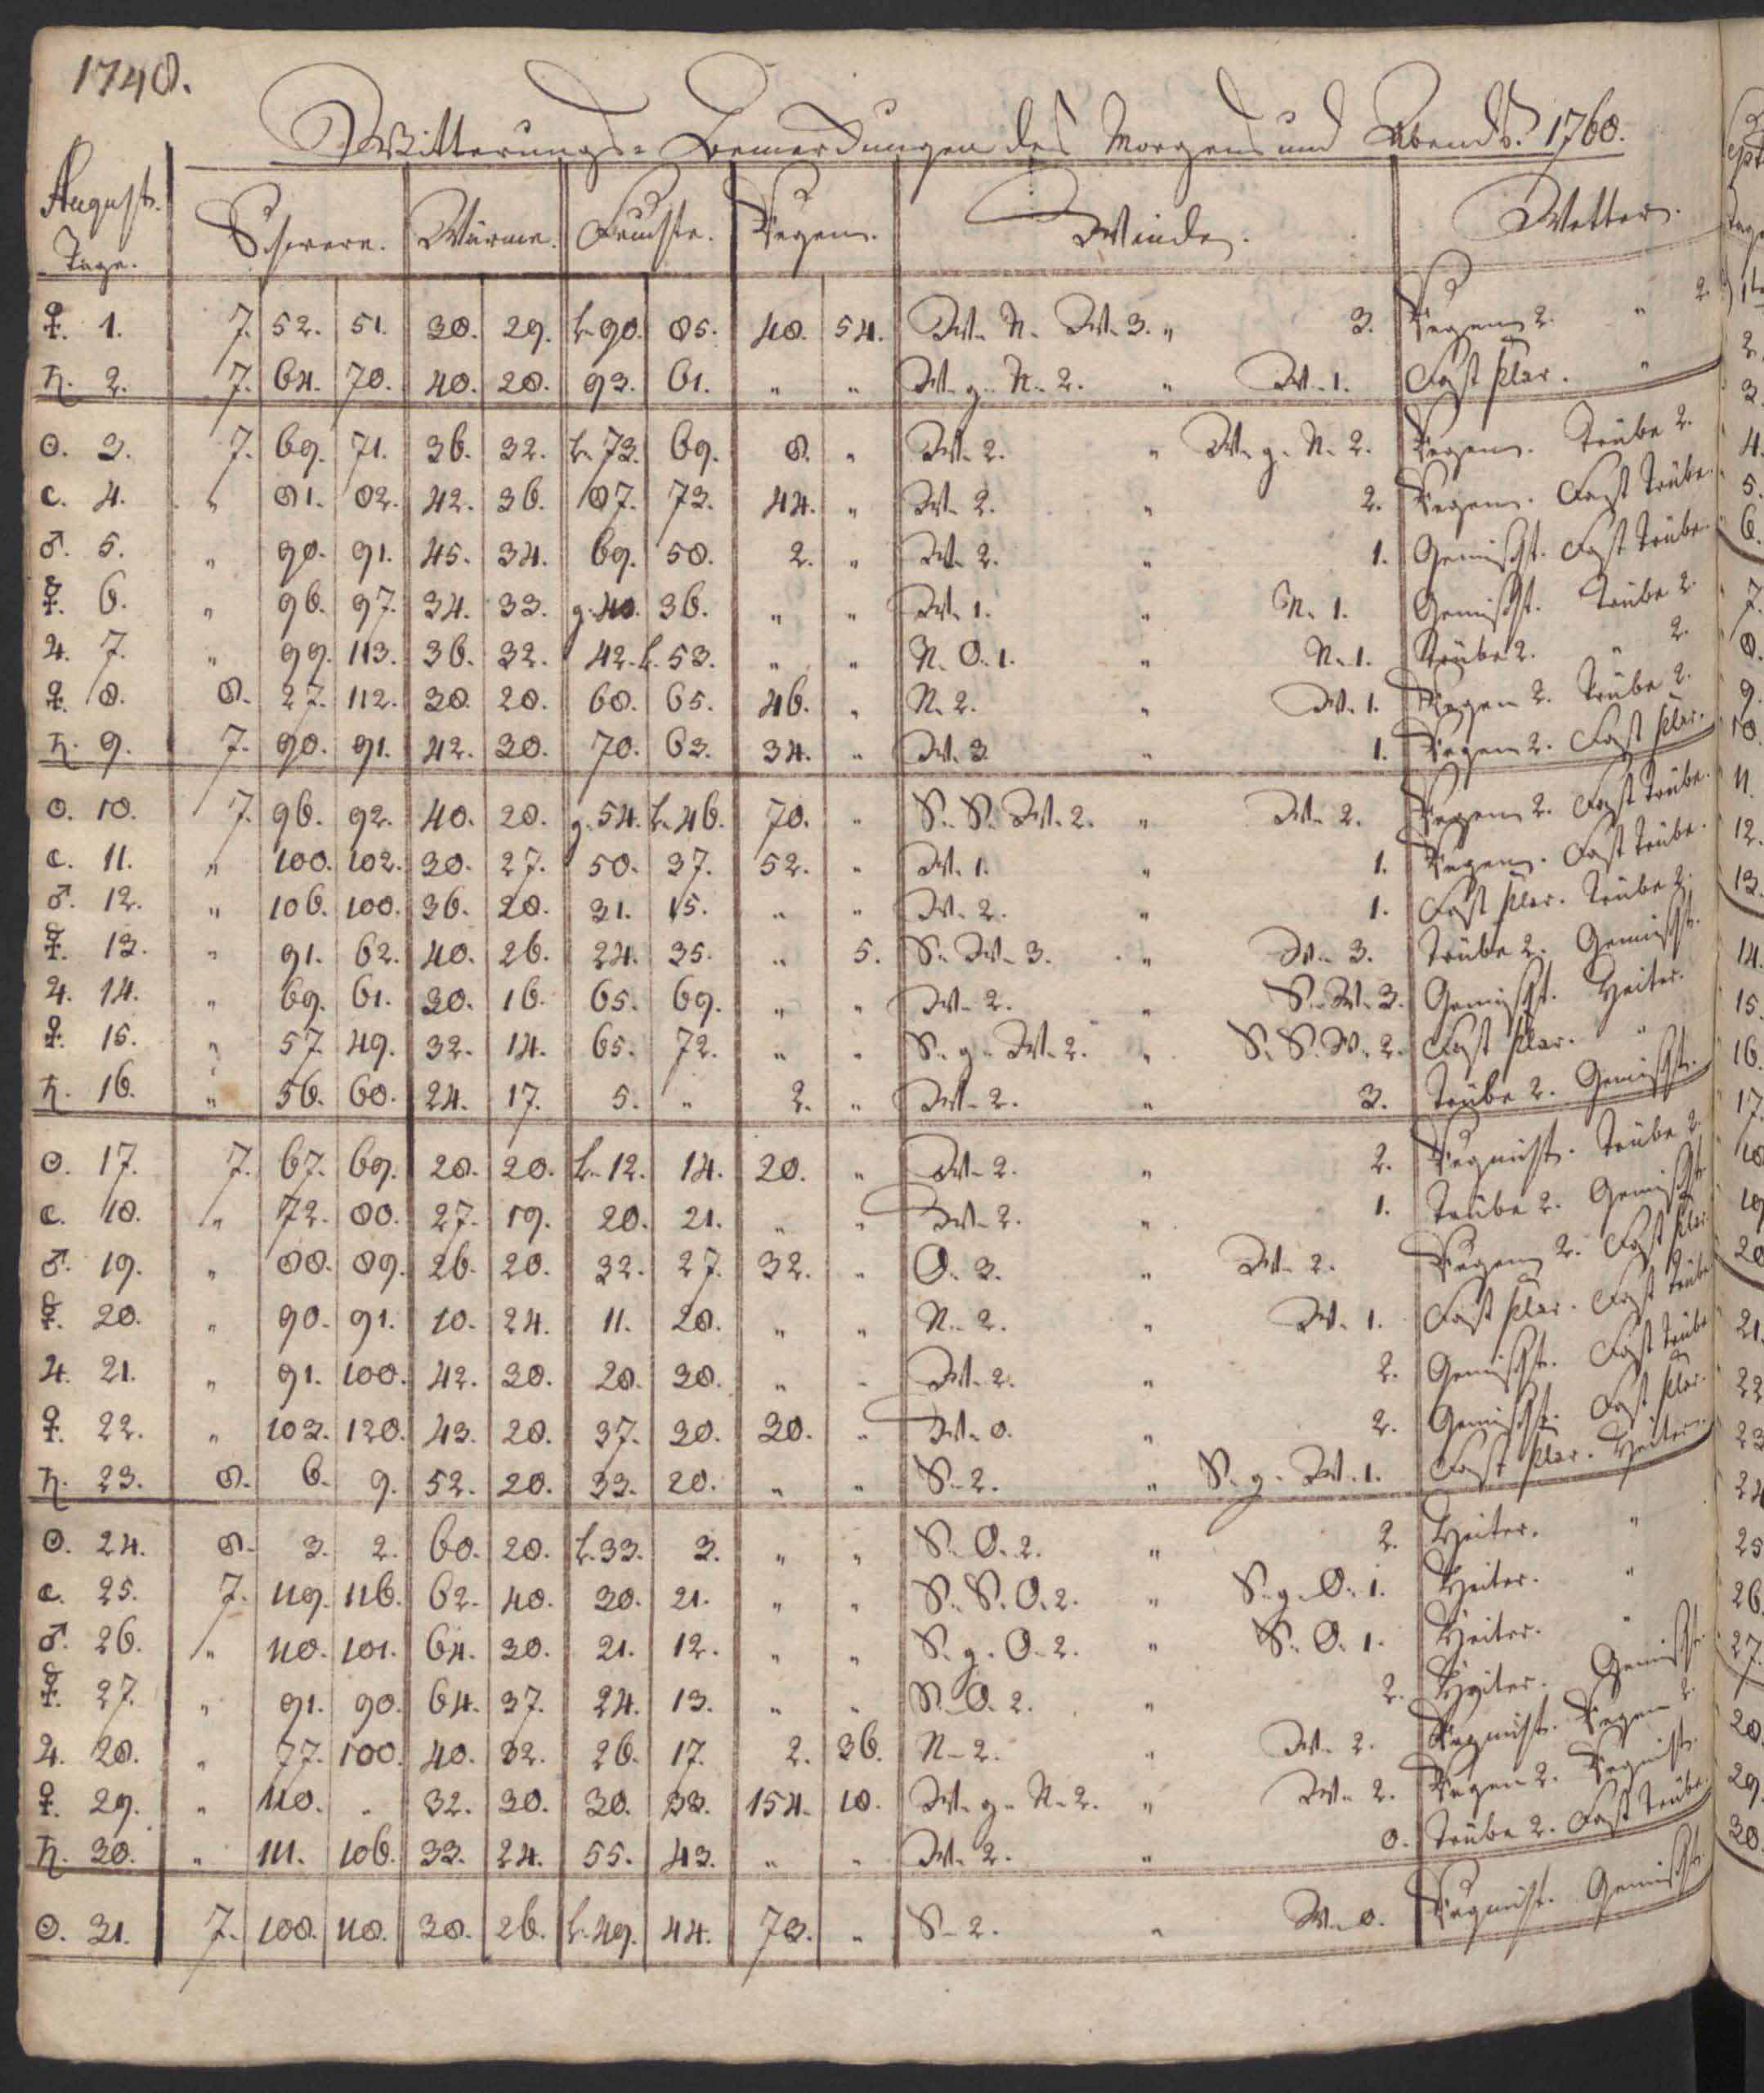 1748.
Witterungs= Bemerckungen des Morgens und Abends. 1760.
August. Tage. Schwere. Wärme. Feuchte. Regen. Winde. Wetter.
♀. 1. 7. 52. 51. 38. 29. l. 90. 85. 48. 54. W. N. W. 3. " 3. Regen 2. " 2.
♄. 2. 7. 64. 70. 40. 28. 93. 61. " " W. g. N. 2. " W. 1. Fast klar. "
☉. 3. 7. 69. 71. 36. 32. l. 73. 69. 8. " W. 2. " W. g. N. 2. Regen. Trübe 2.
☾. 4. " 81. 82. 42. 36. 87. 73. 44. " W. 2. " 2. Regen. Fast Trübe.
♂. 5. " 90. 91. 45. 34. 69. 58. 2. " W. 2. " 1. Gemischt. Fast Trübe.
☿. 6. " 96. 97. 34. 33. g. 40. 36. " " W. 1. " N. 1. Gemischt. Trübe 2.
♃. 7. " 99. 113. 36. 32. 42. l. 53. " " N. O. 1. " N. 1. Trübe 2. " 2.
♀. 8. 8. 27. 112. 38. 28. 68. 65. 46. " N. 2. " W. 1. Regen 2. Trübe 2.
♄. 9. 7. 90. 91. 42. 30. 70. 63. 34. " W. 3. " 1. Regen 2. Fast klar.
☉. 10. 7. 96. 92. 40. 28. g. 54. l. 46. 70. " S. S. W. 2. " W. 2. Regen 2. Fast Trübe.
☾. 11. " 100. 102. 30. 27. 50. 37. 52. " W. 1. " 1. Regen. Fast Trübe.
♂. 12. " 106. 100. 36. 28. 31. 15. " " W. 2. " 1. Fast klar. Trübe 2.
☿. 13. " 91. 62. 40. 26. 24. 35. " 5. S. W. 3. " W. 3. Trübe 2. Gemischt.
♃. 14. " 69. 61. 30. 16. 65. 69. " " W. 2. " S. W. 3. Gemischt. Heiter.
♀. 15. " 57. 49. 32. 14. 65. 72. " " S. g. W. 2. " S. S. W. 2. Fast klar. "
♄. 16. " 56. 60. 24. 17. 5. " 2. " W. 2. " 3. Trübe 2. Gemischt.
☉. 17. 7. 67. 69. 28. 20. l. 12. 14. 20. " W. 2. " 2. Regnicht. Trübe 2.
☾. 18. " 72. 80. 27. 19. 20. 21. " " W. 2. " 1. Trübe 2. Gemischt.
♂. 19. " 88. 89. 26. 20. 32. 27. 32. " O. 3. " W. 2. Regen 2. Fast klar.
☿. 20. " 90. 91. 10. 24. 11. 28. " " N. 2. " W. 1. Fast klar. Fast Trübe
♃. 21. " 91. 100. 42. 30. 28. 38. " " W. 2. " 2. Gemischt. Fast Trübe
♀. 22. " 103. 120. 43. 28. 37. 30. 30. " W. 0. " 2. Gemischt. Fast klar.
♄. 23. 8. 6. 9. 52. 20. 33. 20. " " S. 2. " S. g. W. 1. Fast klar. Heiter.
☉. 24. 8. 3. 2. 60. 28. l. 33. 3. " " S. O. 2. " 2. Heiter. "
☾. 25. 7. 119. 116. 62. 40. 30. 21. " " S. S. O. 2. " S. g. O. 1. Heiter. "
♂. 26. " 110. 101. 64. 30. 21. 12. " " S. g. O. 2. " S. O. 1. Heiter. "
☿. 27. " 91. 90. 64. 37. 24. 13. " " S. O. 2. " 2. Heiter. Gemischt.
♃. 28. " 77. 100. 40. 32. 26. 17. 2. 36. N. 2. " W. 2. Regnicht. Regen 2.
♀. 29. " 110. " 32. 30. 30. 33. 154. 10. W. g. N. 2. " W. 2. Regen 2. Regnicht.
♄. 30. " 111. 106. 33. 24. 55. 43. " " W. 2. " 0. Trübe 2. Fast Trübe.
☉. 31. 7. 108. 110. 38. 26. l. 49. 44. 73. " S. 2. " W. 0. Regnicht. Gemischt.